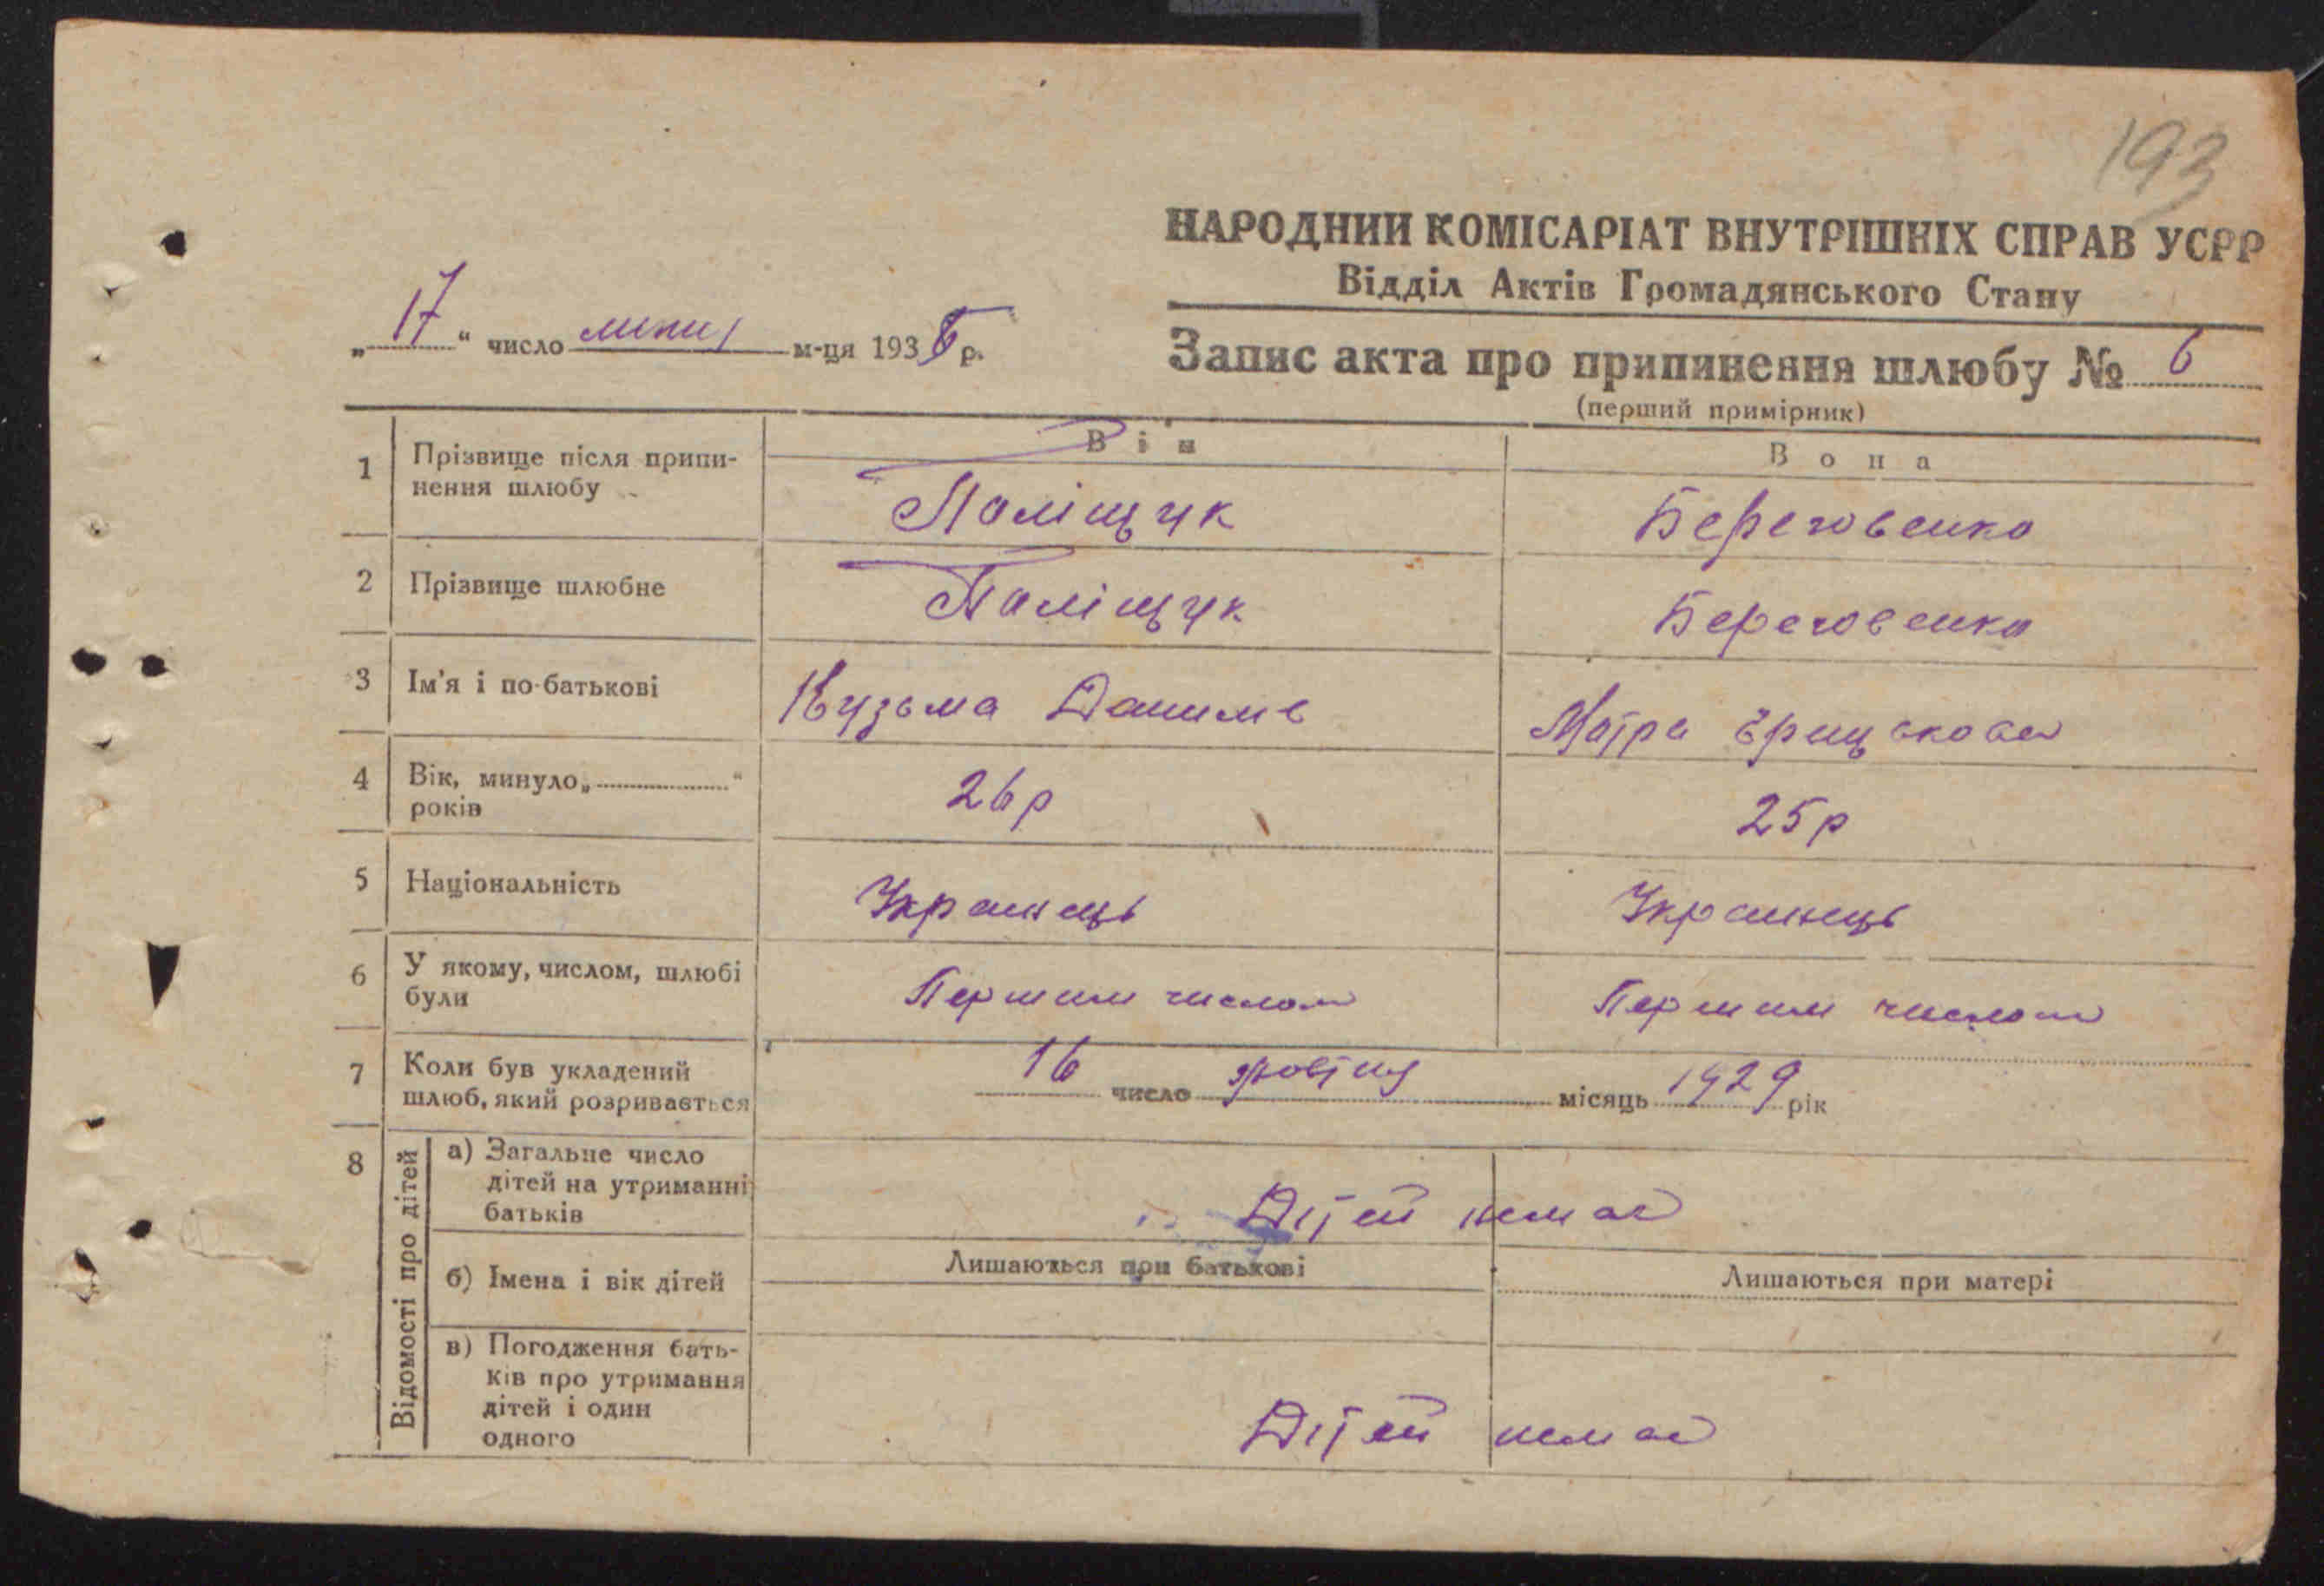 193
НАРОДНИЙ КОМІСАРІАТ ВНУТРІШНІХ СПРАВ УСРР
Відділ Актів Громадянського Стану
„17“ число липня м-ця 1935 р.
Запис акта про припинення шлюбу № 6
(перший примірник)
Він Вона
1 Прізвище після припинення шлюбу Поліщук Береговенко
2 Прізвище шлюбне Поліщук Береговенко
3 Ім'я і по-батькові Кузьма Данилів Мотря Грицькова
4 Вік, минуло „ “ років 26 р 25 р
5 Національність Украинець Украинець
6 У якому, числом, шлюбі були Першим числом Першим числом
7 Коли був укладений шлюб, який розривається 16 число жовтня місяць 1929 рік
8 Відомості про дітей
а) Загальне число дітей на утриманні батьків Дітей немає
б) Імена і вік дітей Лишаються при батькові Лишаються при матері
в) Погодження батьків про утримання дітей і один одного Дітей немає